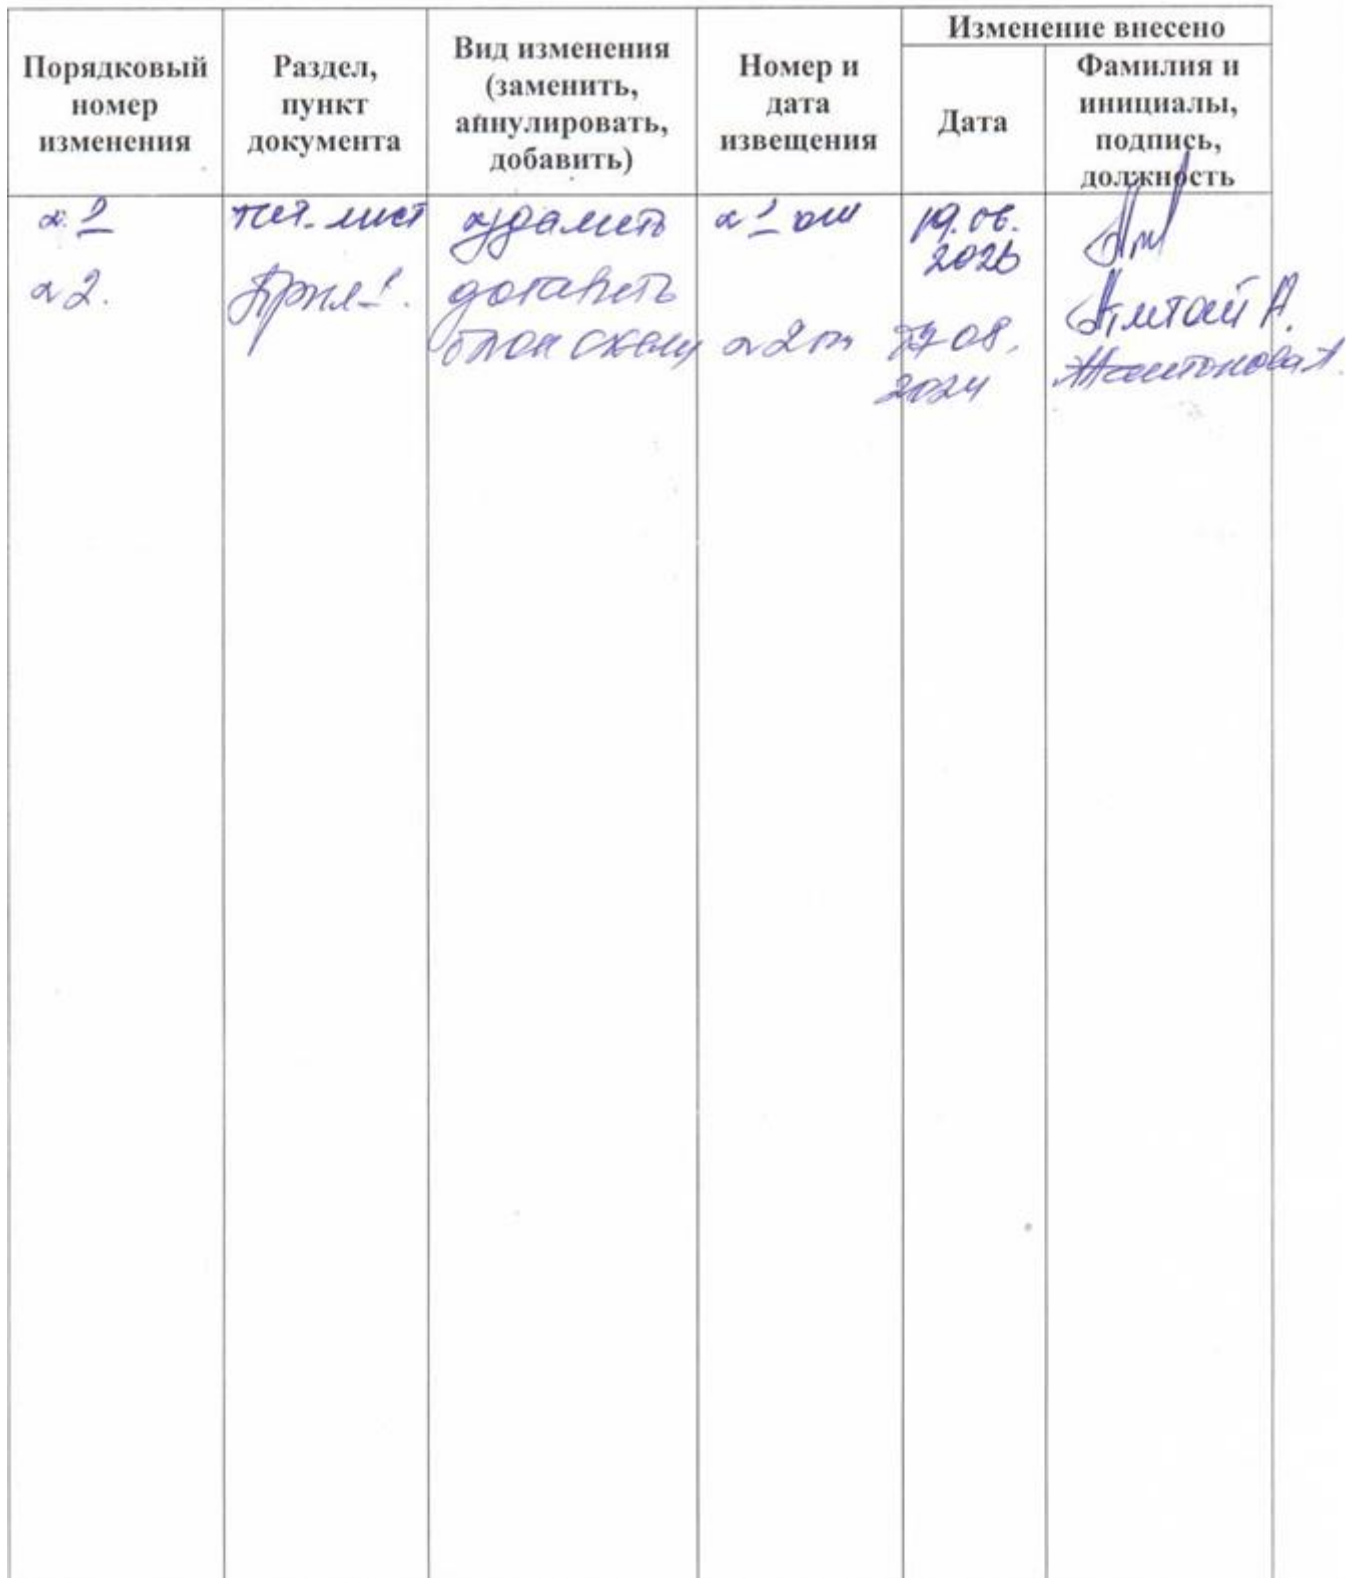 Порядковый номер изменения
Раздел, пункт документа
Вид изменения (заменить, аннулировать, добавить)
Номер и дата извещения
Изменение внесено
Дата
Фамилия и инициалы, подпись, должность
№ 1 тит. лист удалить № 1 от 19.06.
№ 2. Прил-1. добавить
блок схему № 2 от 27.08.
2024